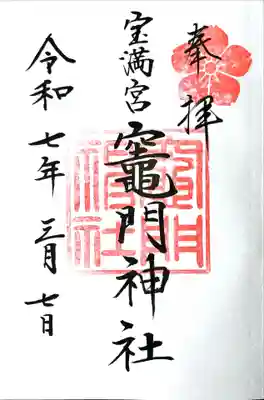 奉拝
宝満宮
竈門神社
令和七年三月七日